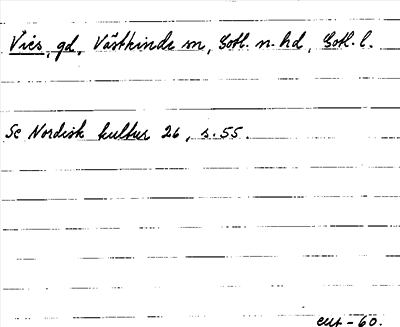 Vies, gd, Västkinde sn, Gotl. n. hd, Gotl. l.
Se Nordisk kultur 26, s. 55.
eut - 60.